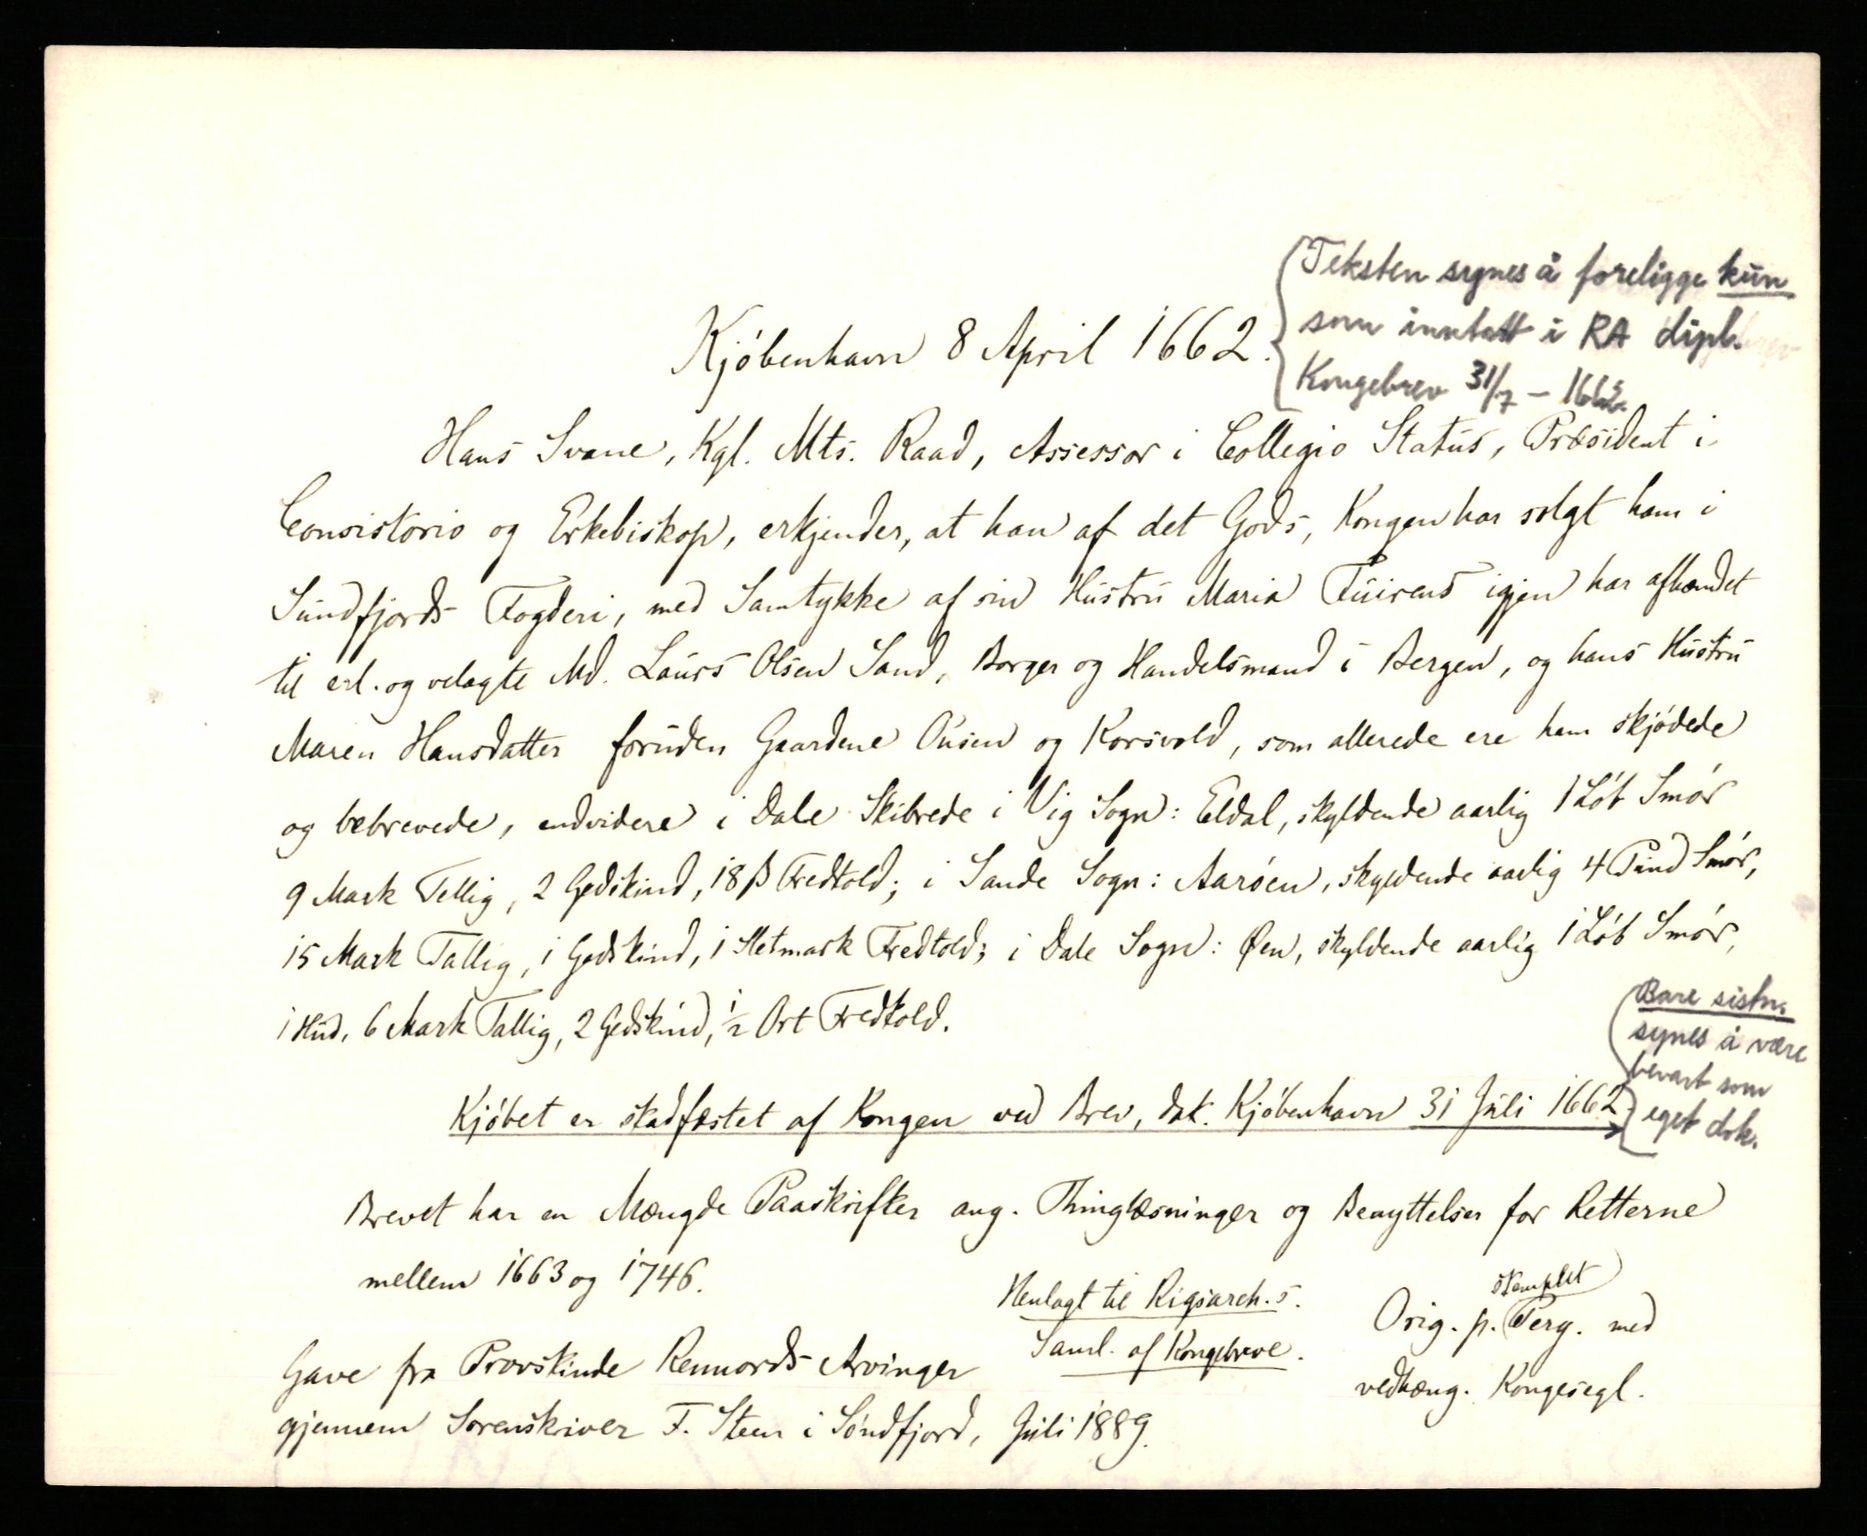 Kjöbenhavn 8 April 1662.
Teksten synes å foreligge kun
som inntatt i RA dipl.
Kongebrev 31/7 – 1662.
Hans Svane, Kgl. Mts. Raad, Assessor i Collegio Status, Præsident i
Consistorio og Erkebiskop, erkjender, at han af det Gods, Kongen har solgt ham i
Sundfjords Fogderi, med Samtykke af sin Hustru Maria Fuirens igjen har afhændet
til erl. og velagte Md. Laurs Olsen Sand, Borger og Handelsmand i Bergen, og hans Hustru
Maren Hansdatter foruden Gaardene Ousen og Korsvold, som allerede ere ham skjödede
og bebrevede, endvidere i Dale Skibrede i Vig Sogn: Eldal, skyldende aarlig 1 Löb Smör
9 Mark Tellig, 2 Gedskind, 18 β Fredtold; i Sande Sogn: Aaröen, skyldende aarlig 4 Pund Smör,
15 Mark Tallig, 1 Gedskind, 1 Sletmark Fredtold; i Dale Sogn: Øen, skyldende aarlig 1 Löb Smör,
1 Hud, 6 Mark Tallig, 2 Gedskind, ½ Ort Fredtold.
Kjöbet er stadfæstet af Kongen ved Brev, dat. Kjöbenhavn 31 Juli 1662
Bare sistn.
synes å være
bevart som
eget dok.
Brevet har en Mængde Paaskrifter ang. Thinglæsninger og Benyttelser for Retterne
mellem 1663 og 1746.
Henlagt til Rigsarch.s.
Saml. af Kongebreve.
stemplet
Orig. p. Perg. med
vedhæng. Kongesegl.
Gave fra Provskinde Rennords Arvinger
gjennem Sorenskriver F. Steen i Söndfjord, Juli 1889.